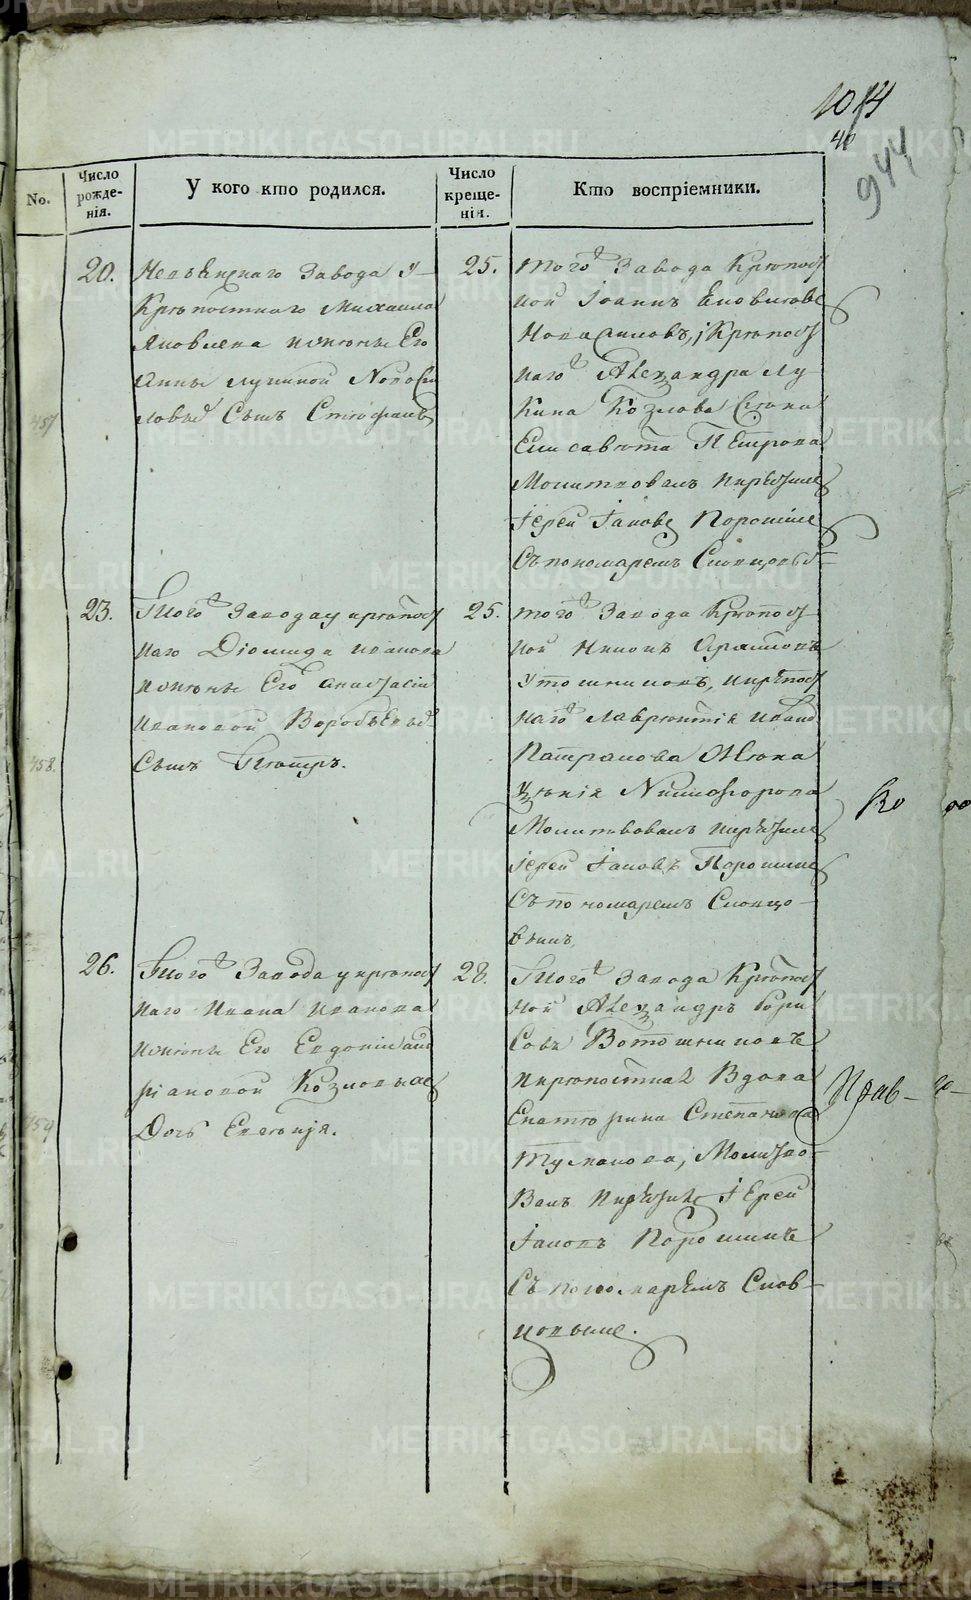 1014
40
944
No.
Число рожде-нія.
У кого кто родился.
Число креще-нія.
Кто воспріемники.
457
20.
Невьѣнскаго Завода у
Крѣпостнаго Михаила
Яковлева ижены Его
Анны Лукиной
Сынъ Стефанъ
25.
того Завода Крѣпост
ной Іоаннъ
Крѣпост
наго Александра Лу
кина Козлова жена
Елисавета Петрова
Молитвовалъ икрѣстилъ
Іерей Іаковъ Порошинъ
Съ пономаремъ Словцовы
458.
23.
Того Завода у крѣпост
наго Діомида Иванова
ижены Его Анастасіи
Ивановой Воробьевы
Сынъ Петръ.
25.
того Завода Крѣпост
ной Никонъ
икрѣпост
наго Лаврентія Иван
Патракова Жена
Никифорова
Молитвовалъ икрѣстилъ
Іерей Іаковъ Порошинъ
Съ пономаремъ Словцо
вымъ
459
26.
Того Завода у крѣпост
наго Ивана Иванова
ижены Его Евдокіи Анд
ріановой Козловы
Дочь Евгенія.
28.
Того Завода Крѣпост
ной Александръ Бори
совъ
икрѣпостная Вдова
Екатерина Степанова
Туманова, Молитво
валъ икрѣстилъ Іерей
Іаковъ Порошинъ
Съ пономарѣмъ Слов
цовымъ.
Ко
Прав-
METRIKI.GASO-URAL.RU